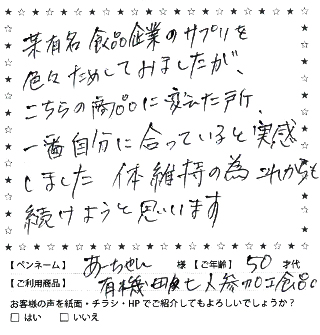 某有名食品企業のサプリを
色々ためしておりましたが、
こちらの商品に変えた所、
一番自分に合っていると実感
しました 体維持の為これからも
続けようと思います
【ペンネーム】 あーちゃん 様 【ご年齢】 50 才代
【ご利用商品】 有機田七人参加工食品
お客様の声を紙面・チラシ・HPでご紹介してもよろしいでしょうか?
□ はい □ いいえ